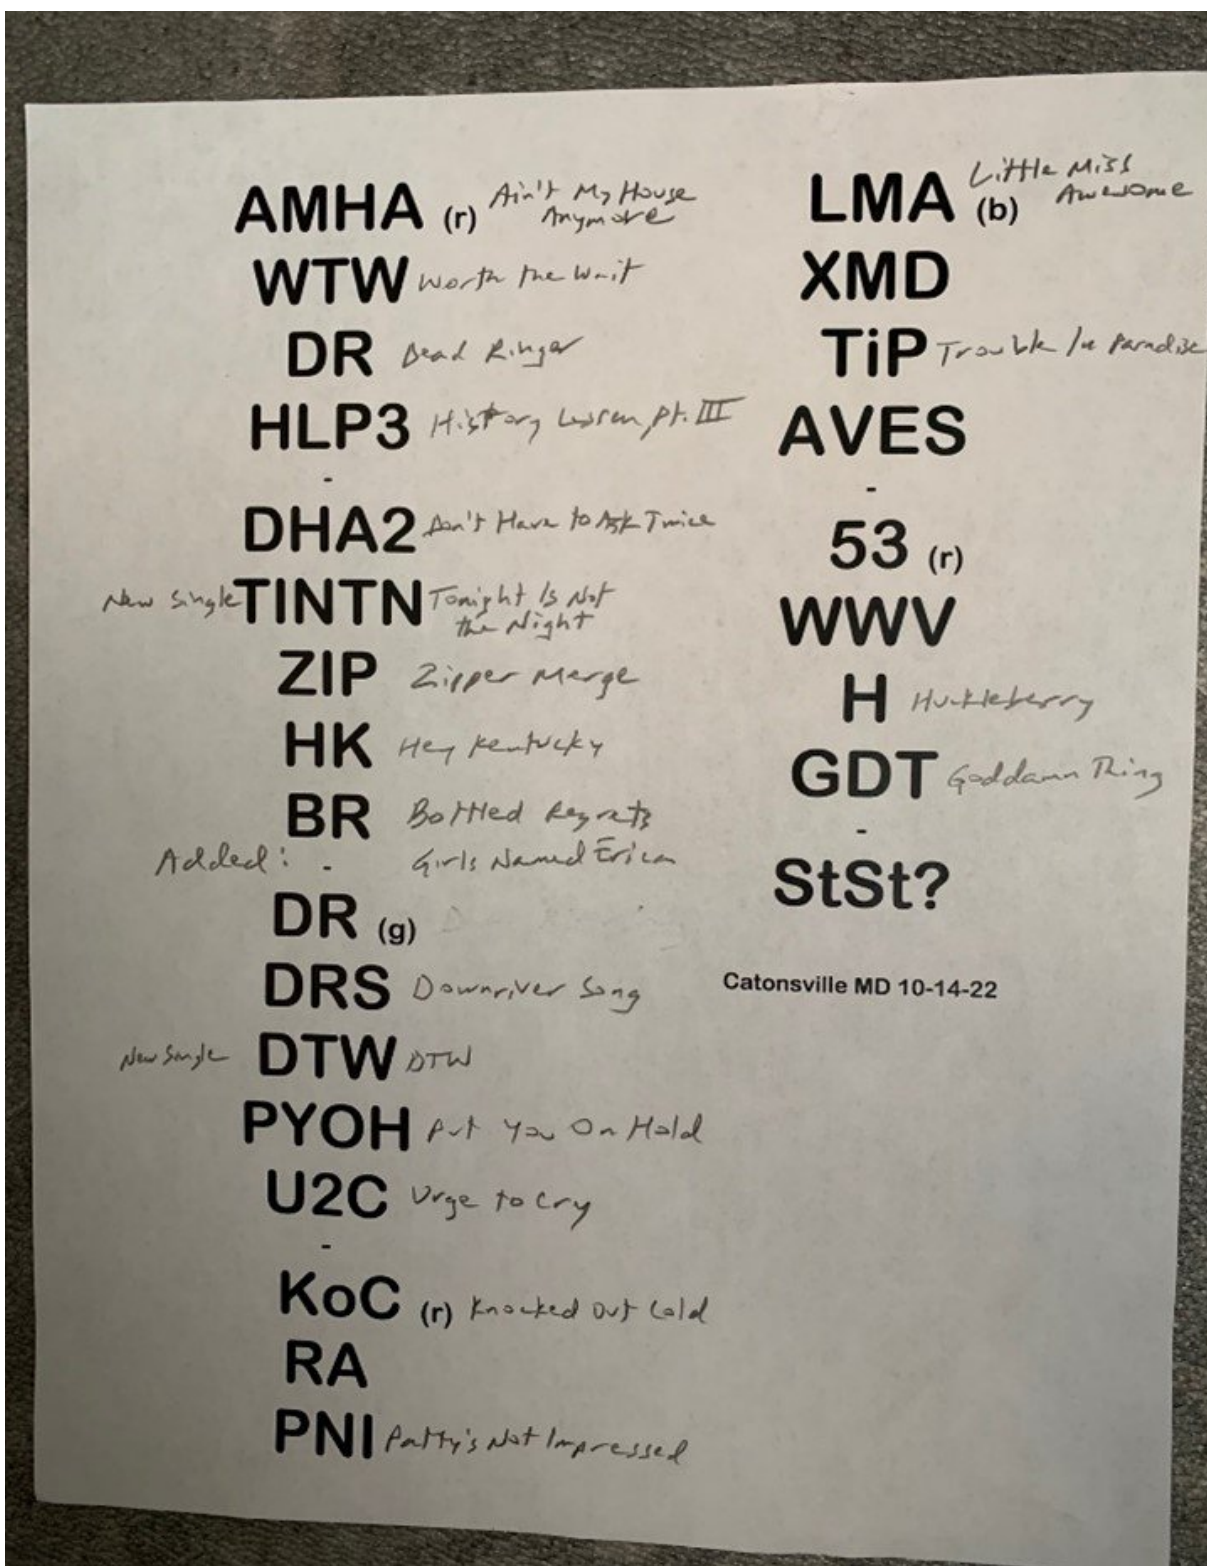 AMHA (r) Ain't My House
Anymore
WTW Worth the Wait
DR Dead Ringer
HLP3 History Lesson, pt. III
-
DHA2 Don't Have to Ask Twice
New Single TINTN Tonight Is Not
the Night
ZIP Zipper Merge
HK Hey Kentucky
BR Bottled Regrets
Added: - Girls Named Erica
DR (g)
DRS Downriver Song
New Single DTW DTW
PYOH Put You On Hold
U2C Urge to Cry
-
KoC (r) Knocked Out Cold
RA
PNI Patty's Not Impressed
LMA (b) Little Miss
Awesome
XMD
TiP Trouble in Paradise
AVES
-
53 (r)
WWV
H Huckleberry
GDT Goddamn Thing
-
StSt?
Catonsville MD 10-14-22